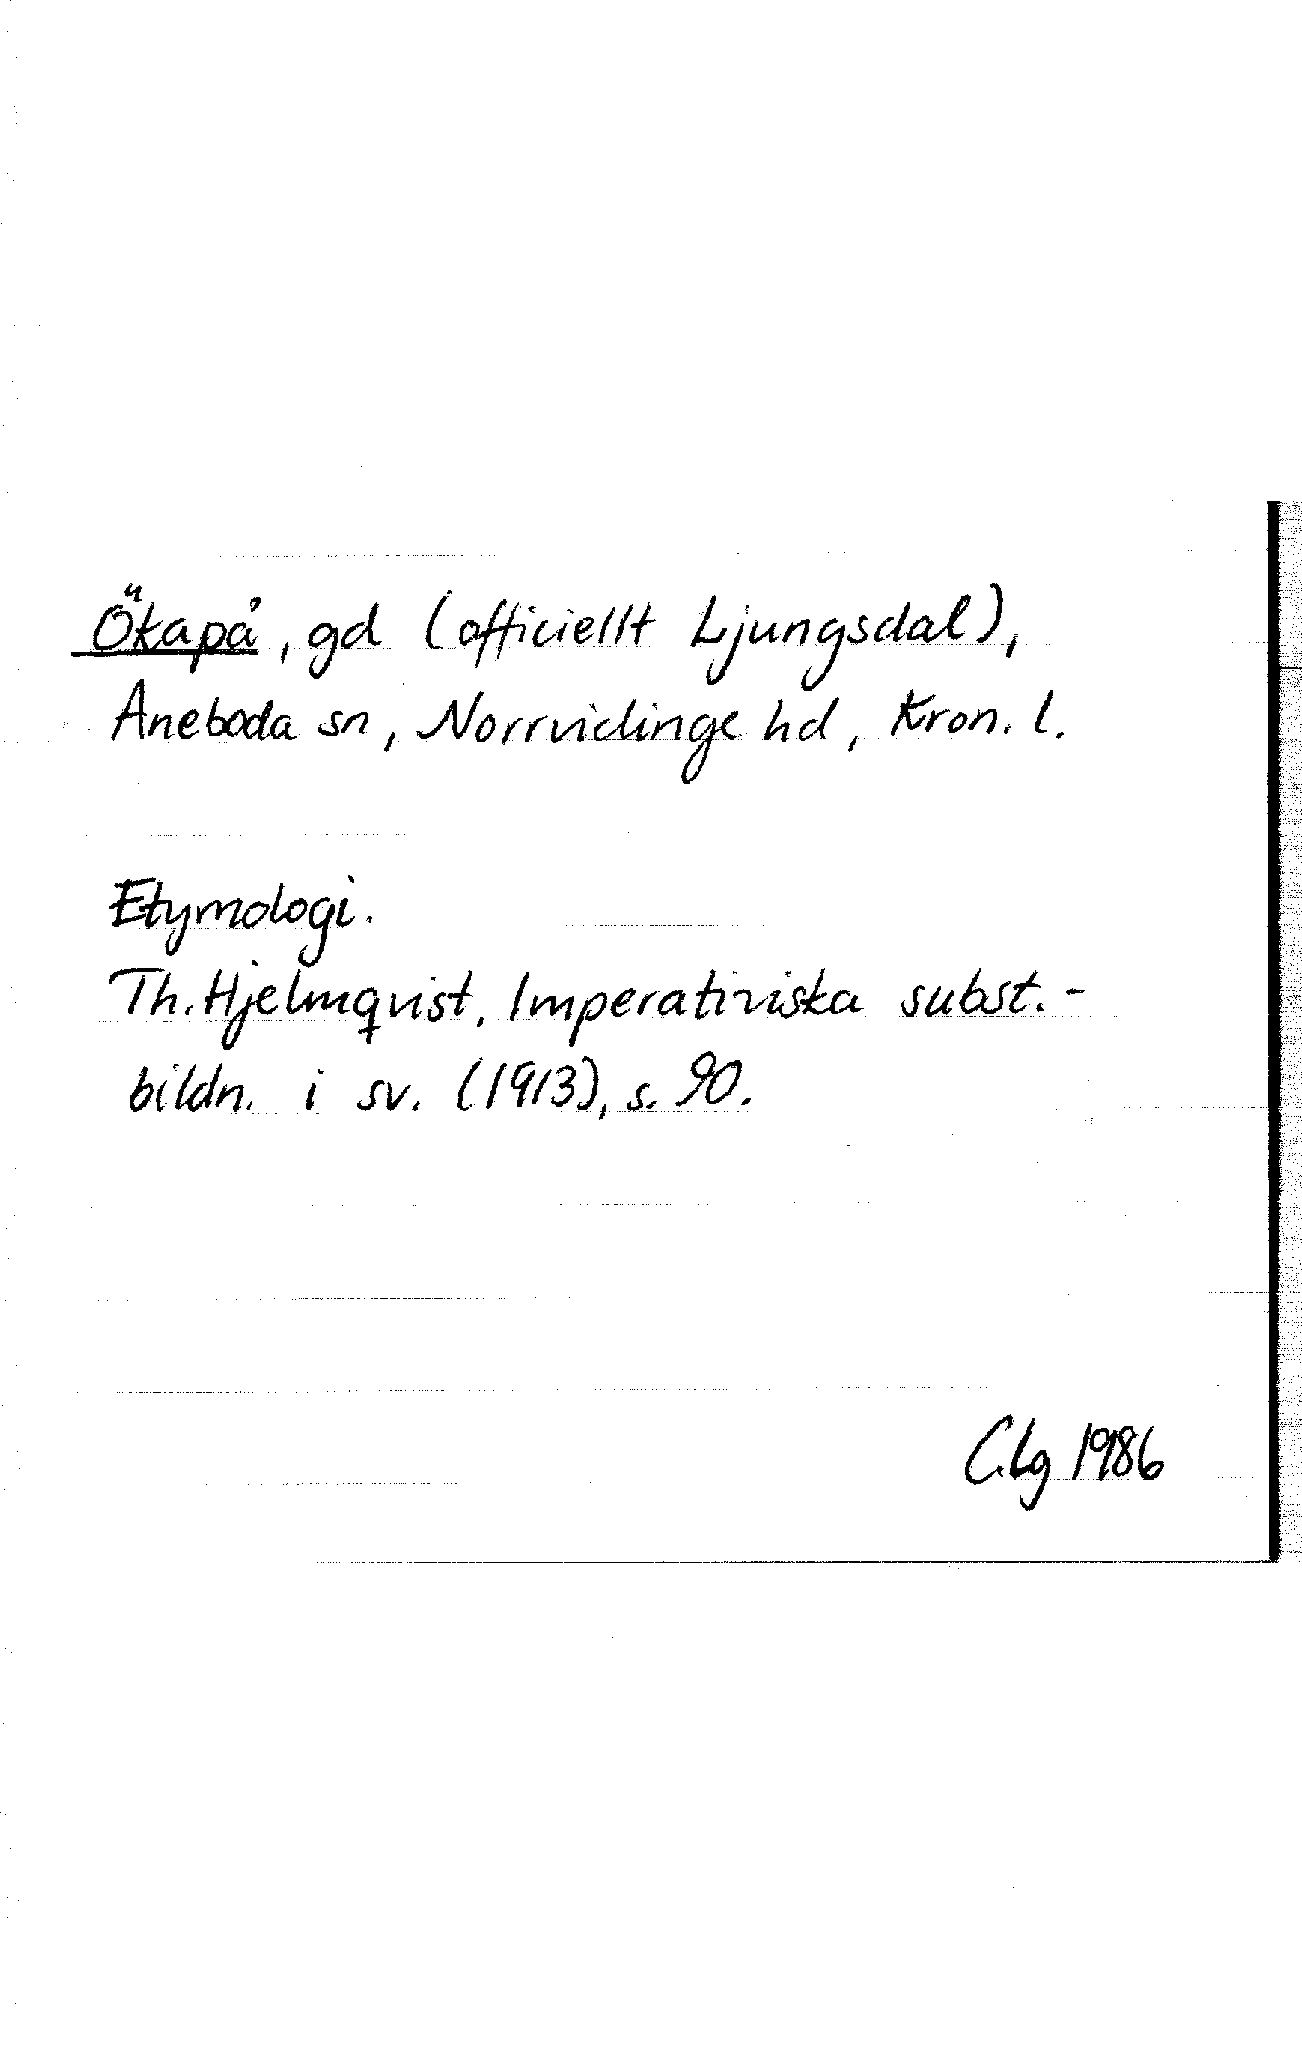 Ökapå, gd (officiellt Ljungsdal),
Aneboda sn, Norrvidinge hd, Kron. l.
Etymologi.
Th. Hjelmqvist, Imperativiska subst.-
bildn. i sv. (1913), s. 90.
C.Lg 1986